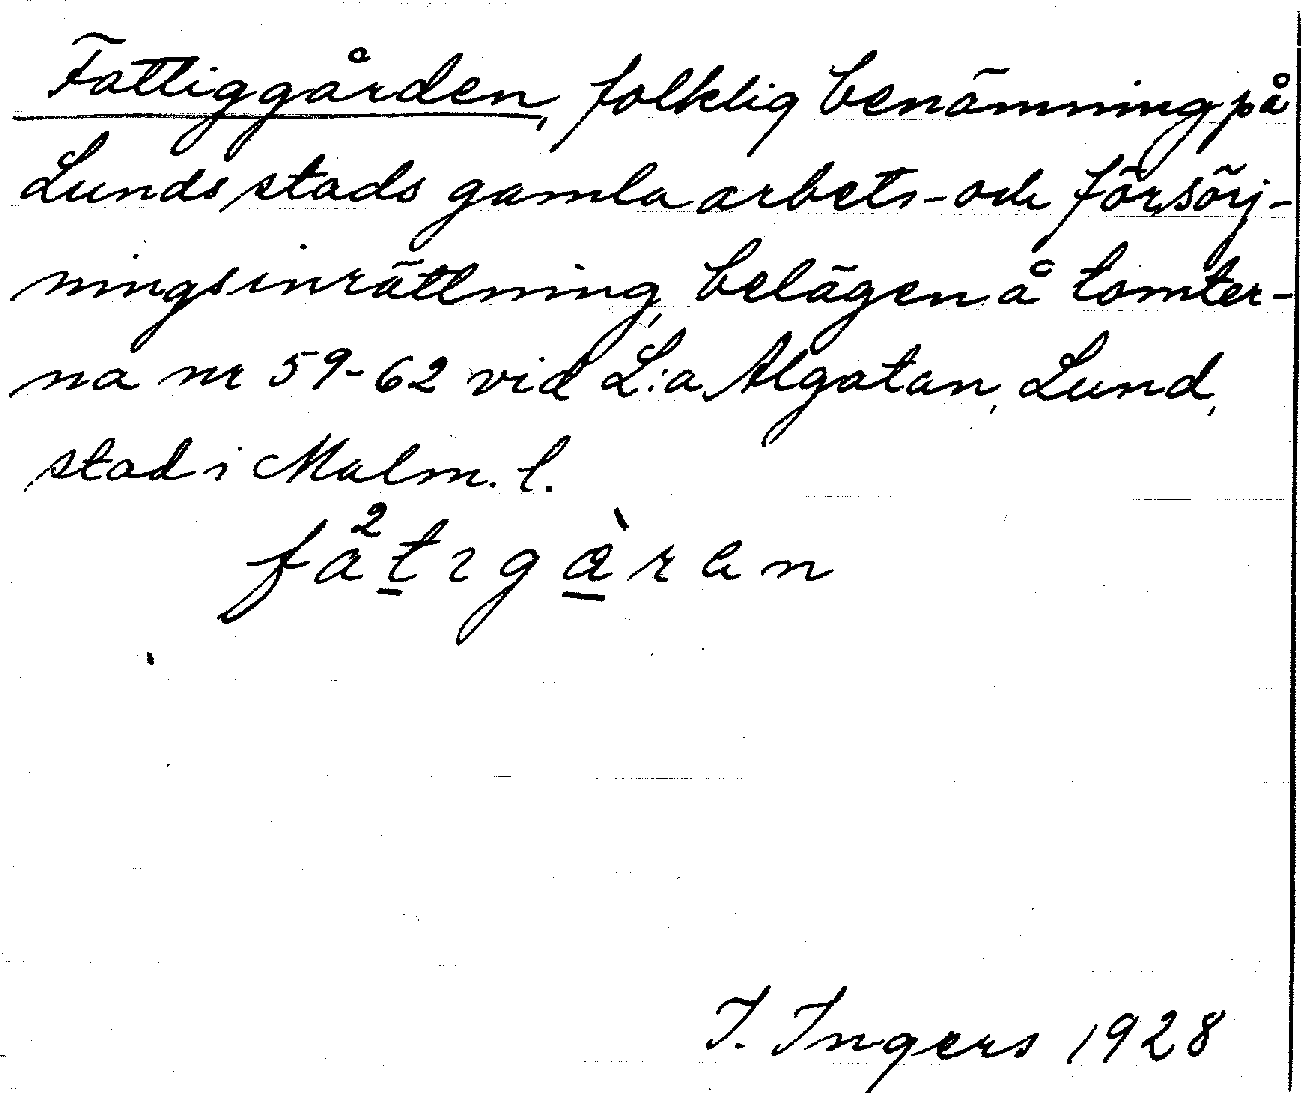 Fattiggården, folklig benämning på
Lunds stads gamla arbets- och försörj-
ningsinrättning, belägen å tomter-
na nr 59-62 vid L:a Algatan, Lund,
stad i Malm. l.
I. Ingers 1928